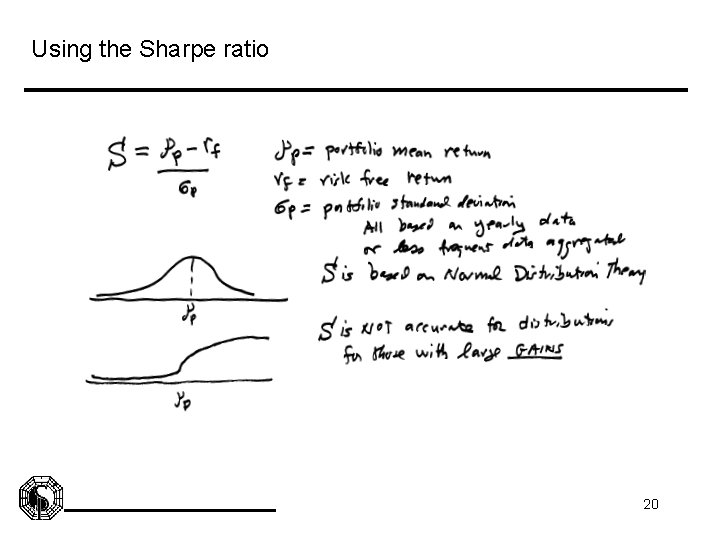 Using the Sharpe ratio
S = μp - rf / σp
μp = portfolio mean return
rf = risk free return
σp = portfolio standard deviation
All based on yearly data
or less frequent data aggregated
S is based on Normal Distribution Theory
μp
S is NOT accurate for distributions
for those with large GAINS
μp
20